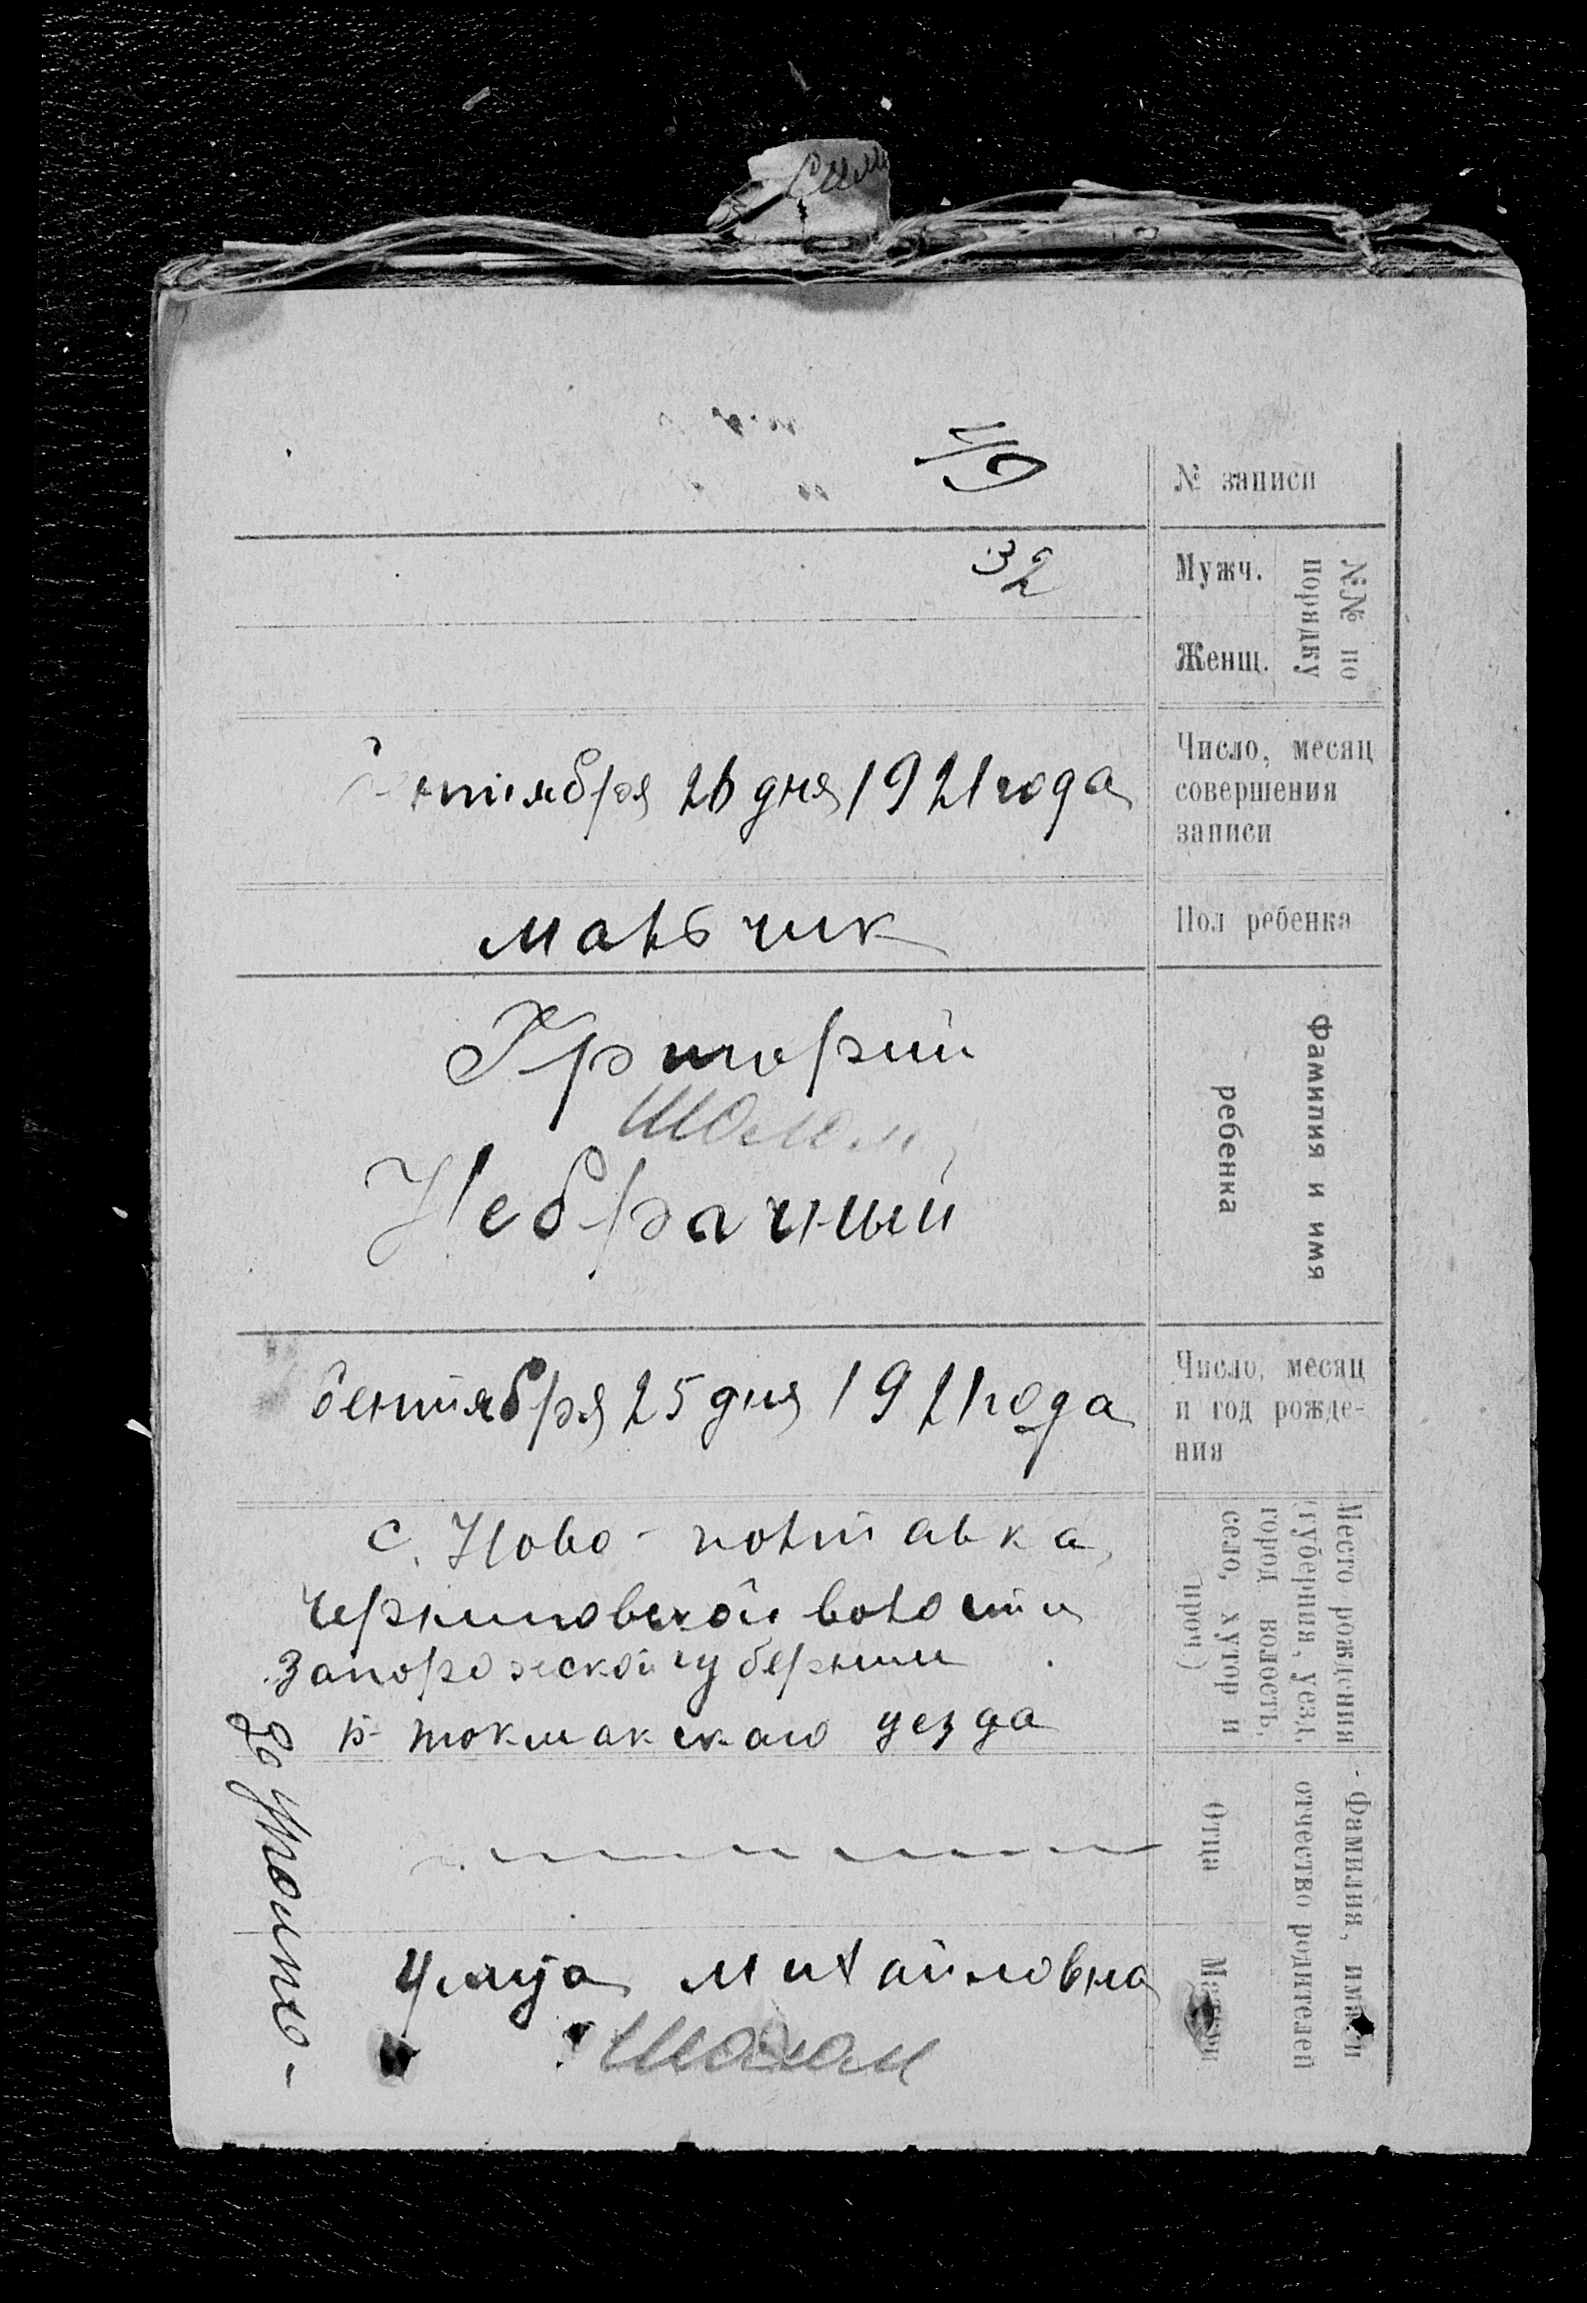 № записи
№№ по порядку
Мужч.
32
Женщ.
Число, месяц
совершения
записи
26 дня 1921 года
Пол ребенка
мальчик
Фамилия и имя
ребенка
Григорий
Шолом
Небрачный
Число, месяц
и год рожде-
ния
Сентября 25 дня 1921 года
Место рождения
(губерния, уезд,
город волость,
село, хутор и
проч)
с. Ново-полтавка
Черниговской волости
Запорожской губернии
Б-токмакского уезда
Фамилия, имя и
отчество родителей
Отца
Матери
Михайловна
Шолом